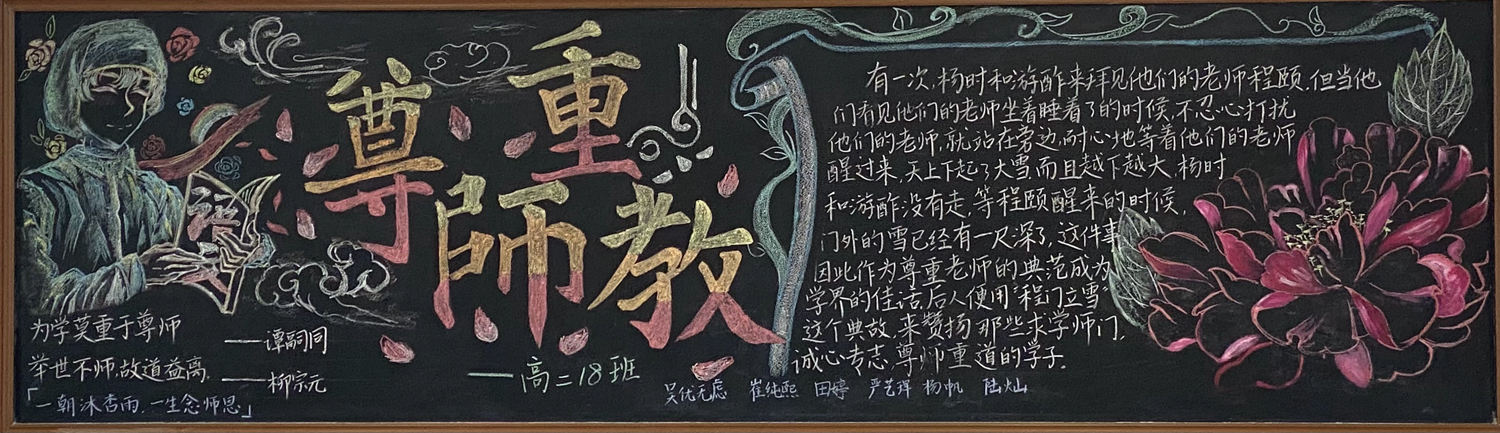 尊师重教
为学莫重于尊师
——谭嗣同
举世不师,故道益离。
——柳宗元
「一朝沐杏雨,一生念师恩」
——高二18班
有一次,杨时和游酢来拜见他们的老师程颐,但当他
们看见他们的老师坐着睡着了的时候,不忍心打扰
他们的老师,就站在旁边,耐心地等着他们的老师
醒过来,天上下起了大雪而且越下越大,杨时
和游酢没有走,等程颐醒来的时候,
门外的雪已经有一尺深了,这件事
因此作为尊重老师的典范成为
学界的佳话,后人便用“程门立雪”
这个典故,来赞扬那些求学师门,
诚心专志,尊师重道的学子。
吴优无虑 崔纯熙 田婷 严艺萍 杨帆 陆灿